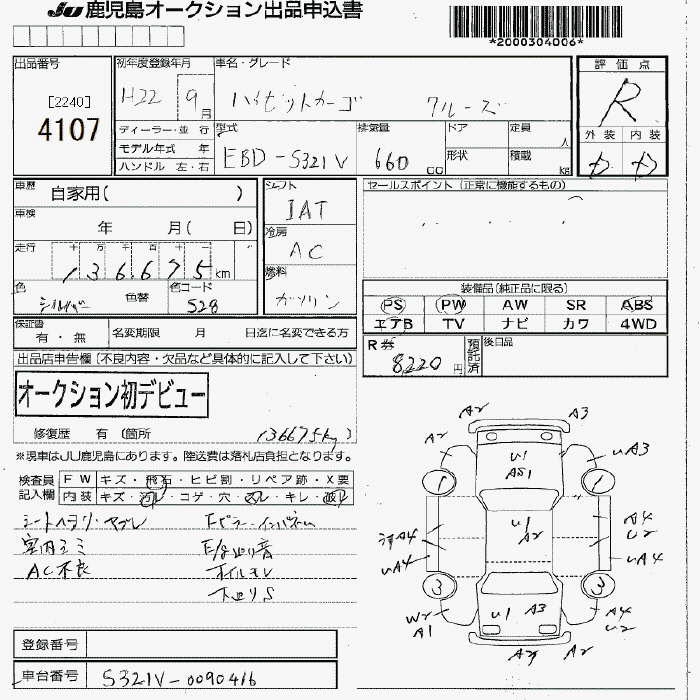 JU 鹿児島オークション出品申込書
*2000304006*
出品番号
[2240]
4107
初年度登録年月
H22 9月
車名・グレード
ハイゼットカーゴ クルーズ
評価点
R
外装 内装
ディーラー・並行
モデル年式 年
ハンドル 左・右
型式
EBD-S321V
排気量
660 cc
ドア
形状
定員 人
積載 kg
車歴
自家用( )
車検
年 月( 日)
走行
十 万 千 百 十 一
136675km
色
シルバー
色替
色コード
S28
シフト
IAT
冷房
AC
燃料
ガソリン
セールスポイント(正常に機能するもの)
装備品(純正品に限る)
PS PW AW SR ABS
エアB TV ナビ カワ 4WD
保証書
有・無
名変期限 月 日迄に名変できる方
R券
8,220円
預託済
後日品
出品店申告欄(不良内容・欠品など具体的に記入して下さい)
オークション初デビュー
修復歴 有 (箇所 136675km)
※現車はJU鹿児島にあります。陸送費は落札店負担となります。
検査員記入欄
FW キズ・飛石・ヒビ割・リペア跡・X要
内装 キズ・汚レ・コゲ・穴・スレ・キレ・破レ
シートヘタリ・ヤブレ
室内ゴミ
AC不良
オイルモレ
下廻りS
A2 A3
A2 U1 UA3
1 1
U1 A2
A4
U2
UA4 UA4
3 3
W2 U1 A3 A4
A1 U2
A2 A2
登録番号
車台番号 S321V-0090416